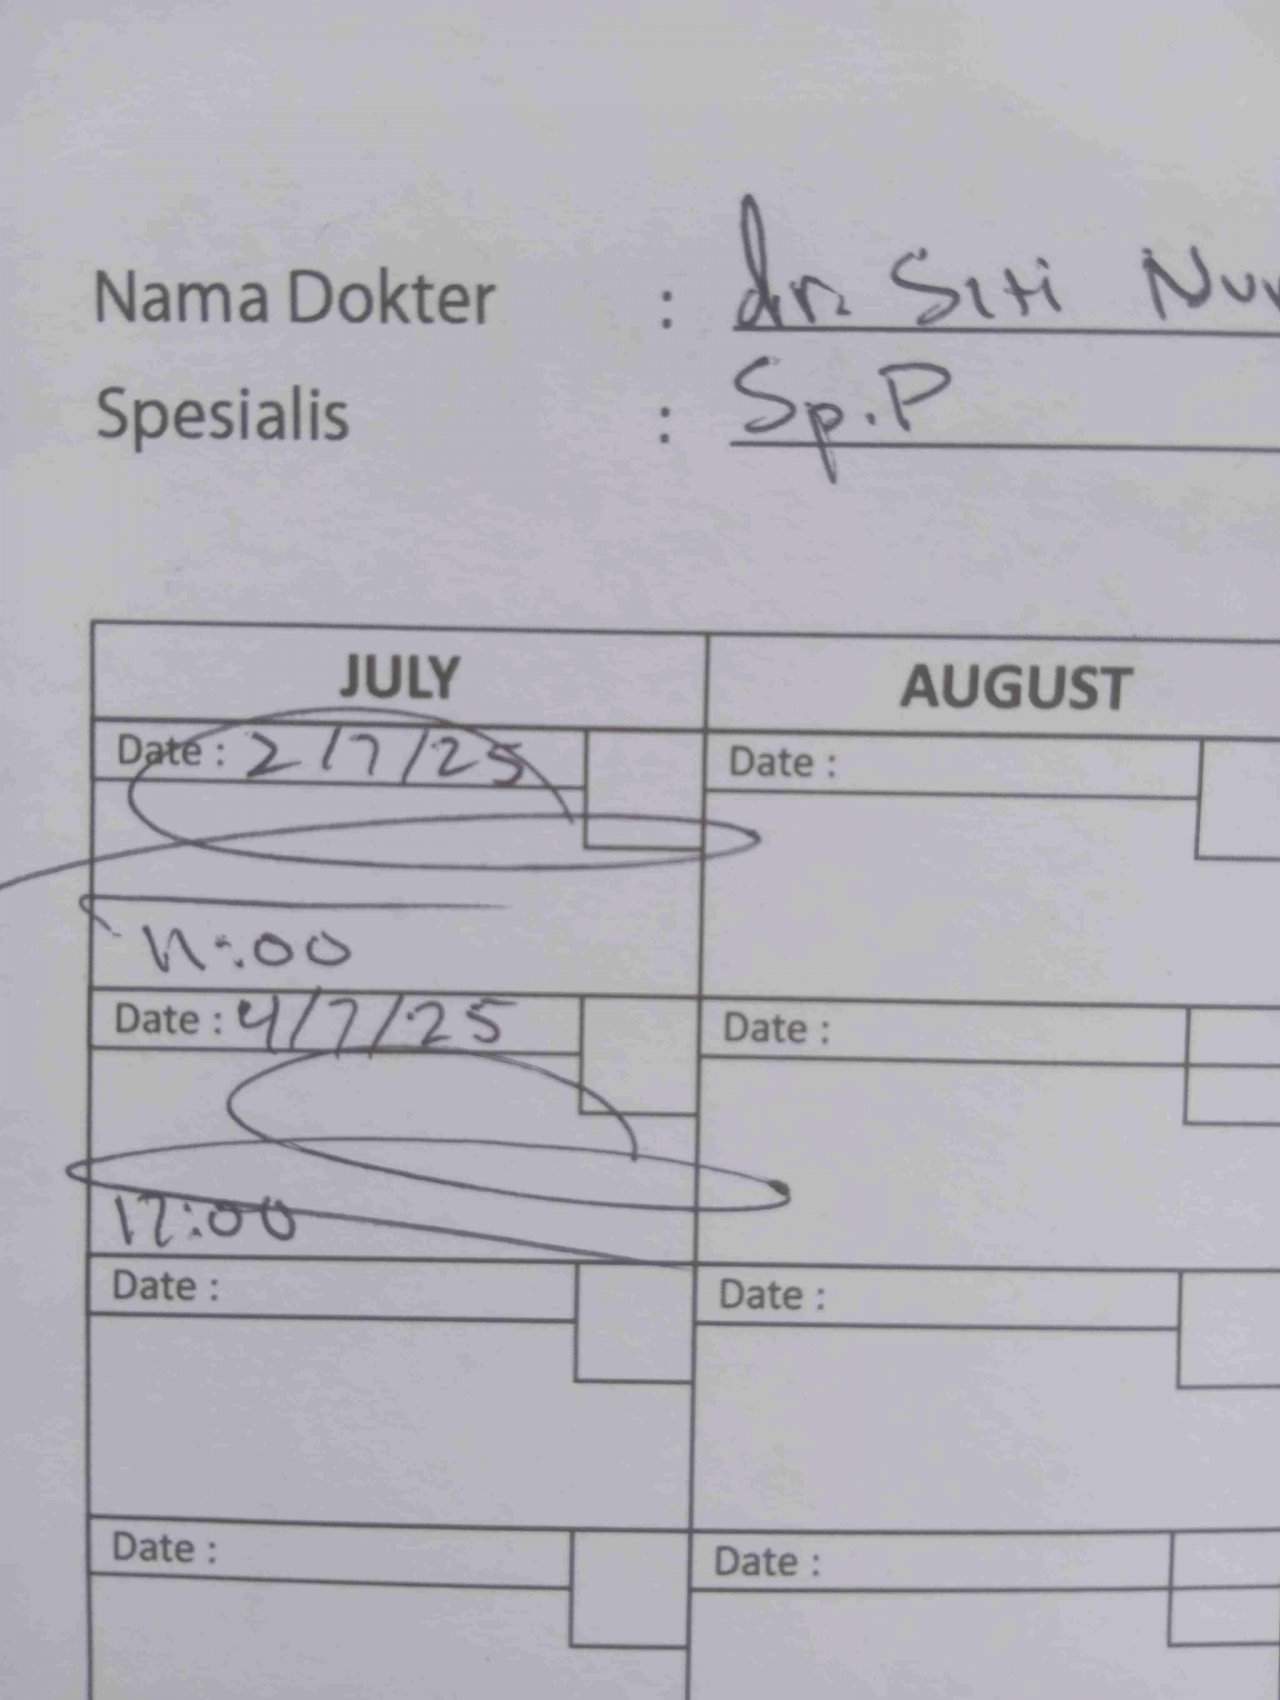 Nama Dokter : dr. Siti Nur
Spesialis : Sp.P
JULY AUGUST
Date : 2/7/25 Date :
11:00
Date : 4/7/25 Date :
12:00
Date : Date :
Date : Date :